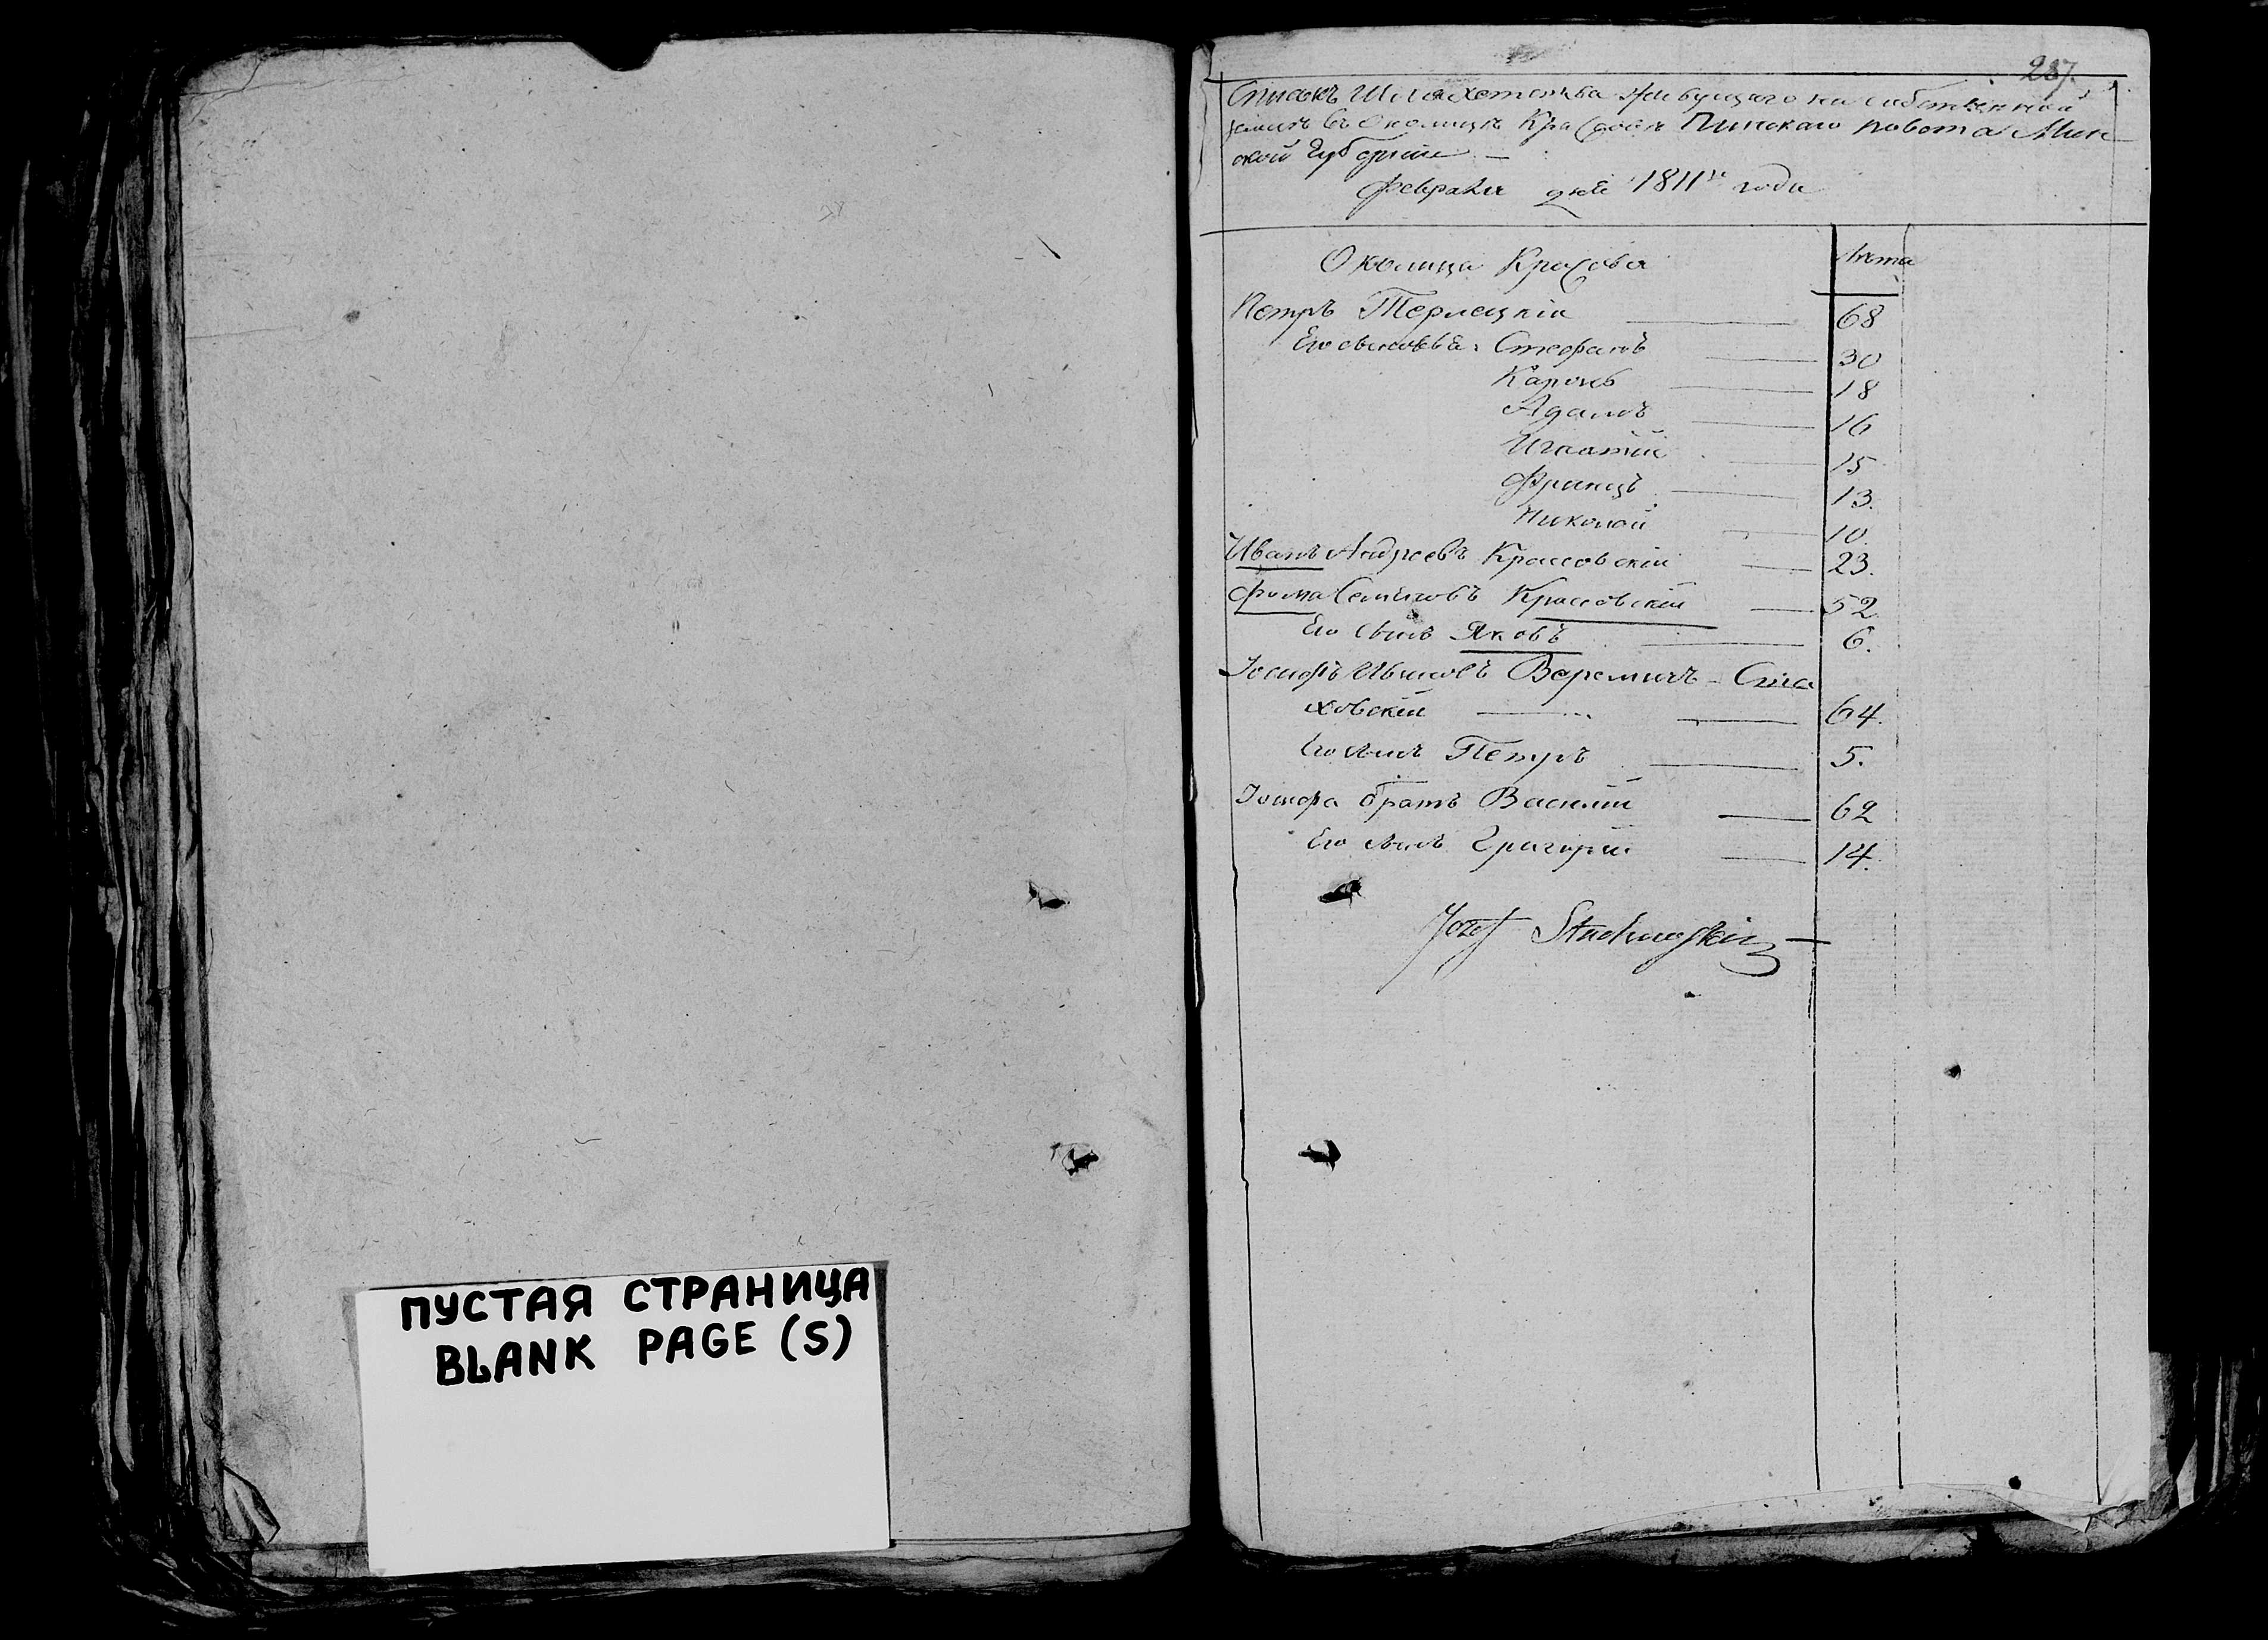 ПУСТАЯ СТРАНИЦА
BLANK PAGE (S)
287.
Списокъ Шляхетства живущаго на собственной
землѣ въ Околицѣ Красовѣ Пинскаго повета Мин
ской Губерніи —
февраля дня 1811го года
Околица Красова Лѣта
Петръ Терлецкій 68
Его сыновья: Стефанъ 30
Кароль 18
Адамъ 16
Игнатій 15
Францъ 13.
Николай 10.
Иванъ Андреевъ Крассовскій 23.
Фома Семеновъ Крассовскій 52
Его сынъ Яковъ 6.
Іосифъ Ивановъ Веремичъ - Ста
ховскій 64.
Его сынъ Петръ 5.
Іосифа братъ Василій 62
Его сынъ Григорій 14.
Jozef Stachowski